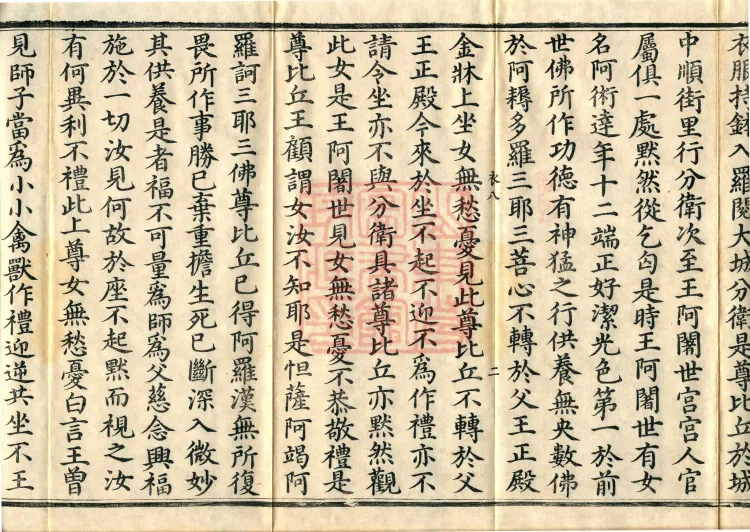 衣服持鉢入羅閱大城分衛是尊比丘於城
中順街里行分衛次至王阿闍世宮宮人官
屬俱一處黙然從乞匃是時王阿闍世有女
名阿術達年十二端正好潔光色第一於前
世佛所作功德有神猛之行供養無央數佛
於阿耨多羅三耶三菩心不轉於父王正殿
衣八 二
金牀上坐女無愁憂見此尊比丘不轉於父
王正殿今來於坐不起不迎不爲作禮亦不
請令坐亦不與分衛具諸尊比丘亦黙然觀
此女是王阿闍世見女無愁憂不恭敬禮是
尊比丘王顧謂女汝不知耶是怛薩阿竭阿
羅訶三耶三佛尊比丘已得阿羅漢無所復
畏所作事勝已棄重擔生死已斷深入微妙
其供養是者福不可量爲師爲父慈念興福
施於一切汝見何故於座不起黙而視之汝
有何異利不禮此上尊女無愁憂白言王曾
見師子當爲小小禽獸作禮迎逆共坐不王